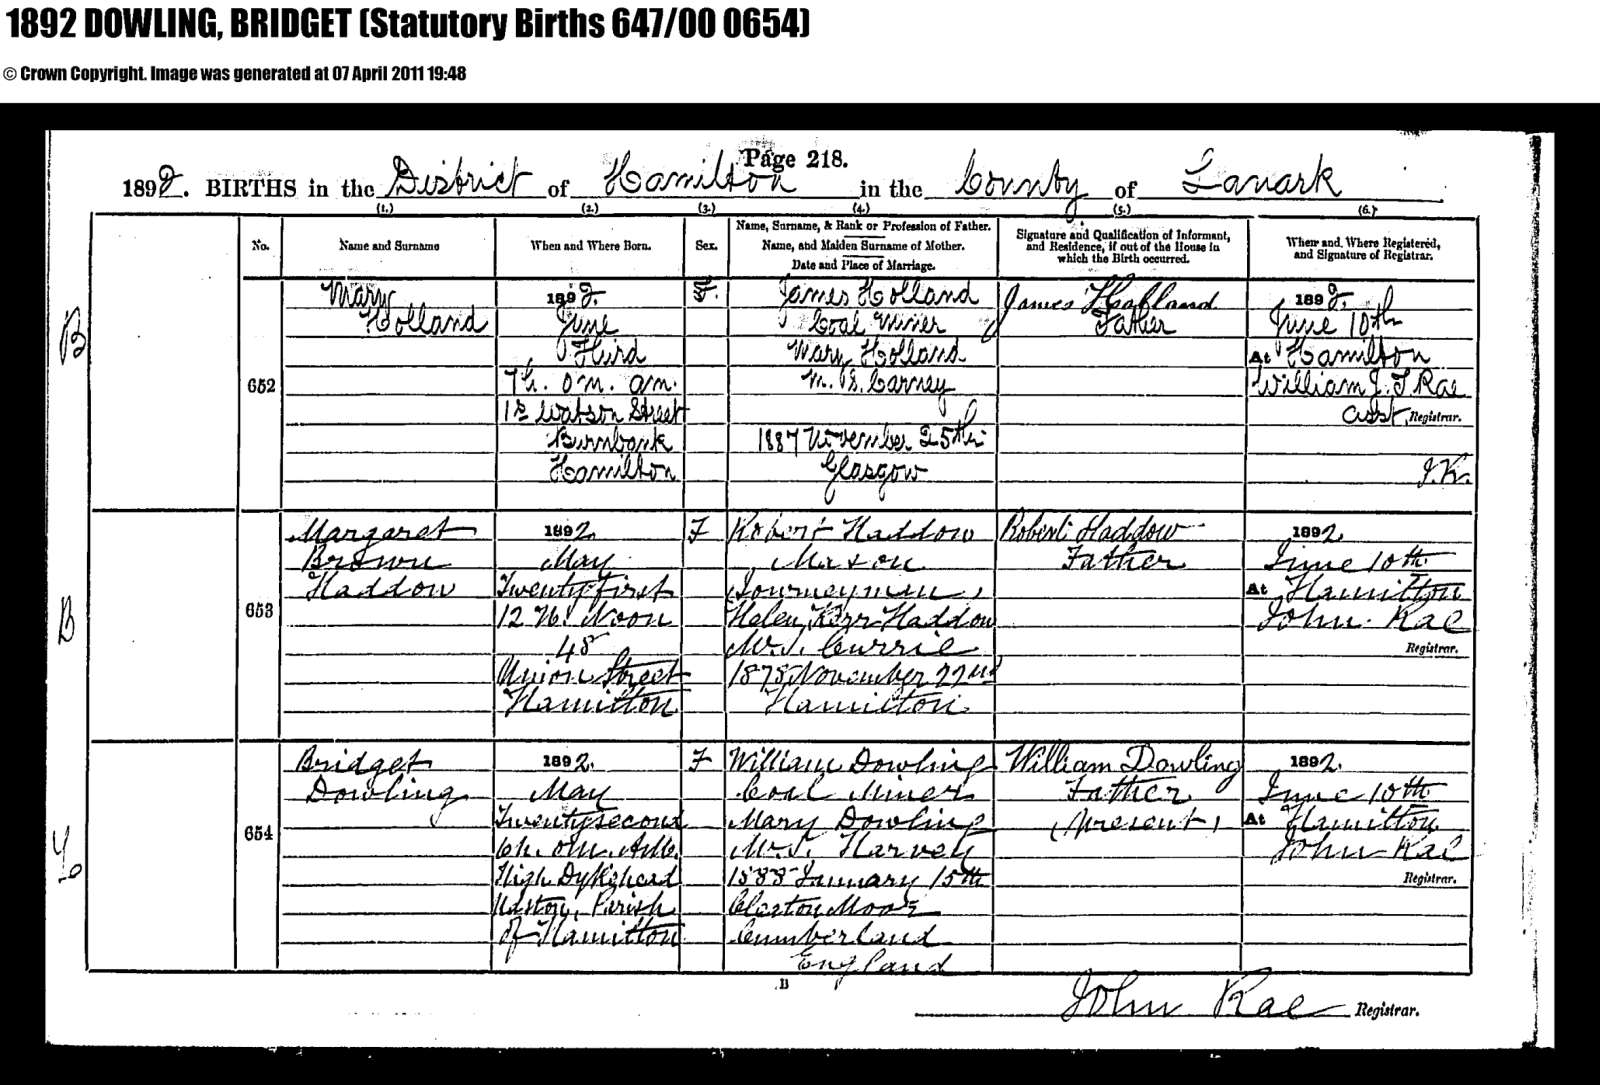 1892 DOWLING, BRIDGET (Statutory Births 647/00 0654)
© Crown Copyright. Image was generated at 07 April 2011 19:48
Page 218.
1892. BIRTHS in the District of Hamilton in the County of Lanark
(1.) (2.) (3.) (4.) (5.) (6.)
No.
Name and Surname
When and Where Born.
Sex.
Name, Surname, & Rank or Profession of Father.
Name, and Maiden Surname of Mother.
Date and Place of Marriage.
Signature and Qualification of Informant,
and Residence, if out of the House in
which the Birth occurred.
When and Where Registered,
and Signature of Registrar.
B
652
Mary
Holland
1892.
June
Third
7h. 0m. a.m.
Watson Street
Burnbank
Hamilton
F.
James Holland
Coal Miner
Mary Holland
M. S. Carney
1887 November 25th
Glasgow
James Holland
Father
1892.
June 10th
At Hamilton
William J. T. Rae
Asst. Registrar.
B
653
Margaret
Brown
Haddow
1892.
May
Twenty first
12 H. Noon
48
Union Street
Hamilton
F
Robert Haddow
Mason
(Journeyman)
Helen Kerr Haddow
M.S. Currie
1878 November 22nd
Hamilton.
Robert Haddow
Father
1892.
June 10th
At Hamilton
John Rae
Registrar.
654
Bridget
Dowling
1892.
May
Twenty second
6h. 0m. A.M.
High Dykehead
Udston, Parish
of Hamilton
F
William Dowling
Coal Miner
Mary Dowling
M.S. Harvey
1888 January 15th
Cleator Moor
Cumberland
England
William Dowling
Father
(Present)
1892.
June 10th
At Hamilton
John Rae
Registrar.
B
John Rae Registrar.